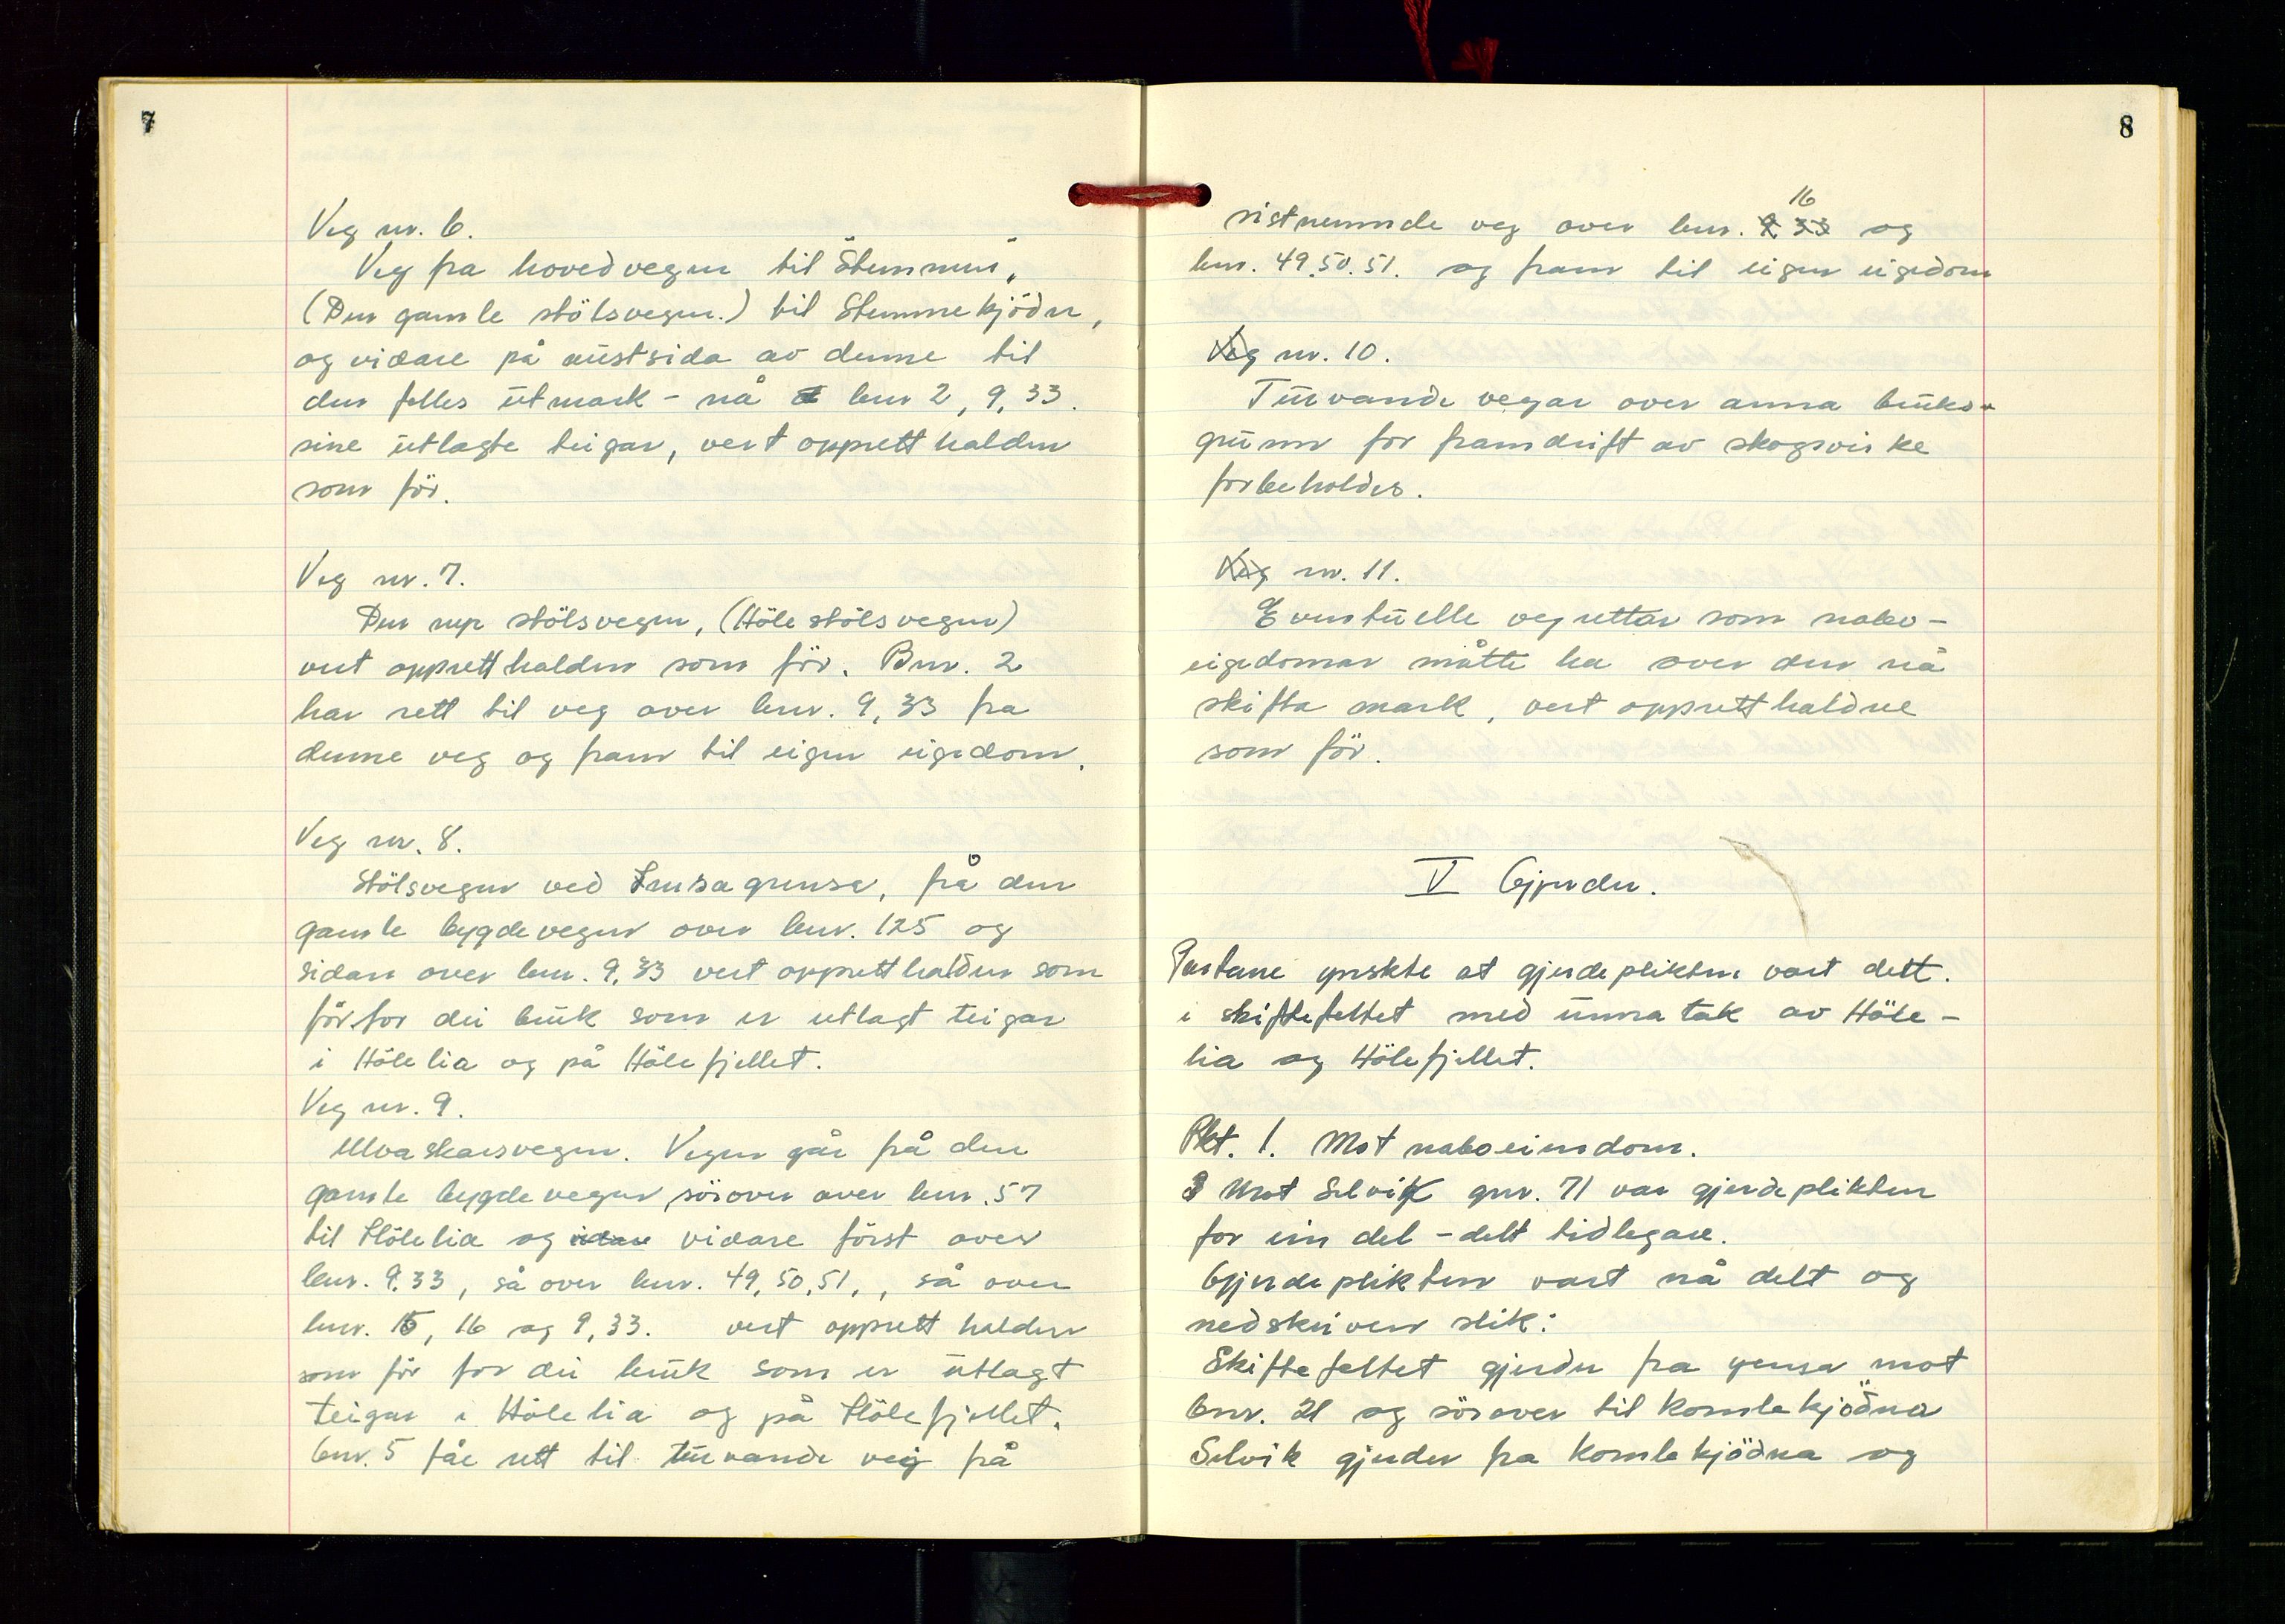 7
Veg nr. 6.
Veg fra hovedvegen til "Stemmen"
(Den gamle stölsvegen.) til Stemmekjödn,
og vidare på austsida av denne til
den felles utmark - nå bnr 2, 9, 33.
sine utlagte teigar, vert oppretthalden
som för.
Veg nr. 7.
Den nye stölsvegen, (Höle stölsvegen)
vert oppretthalden som för. Bnr. 2
har rett til veg over bnr. 9, 33 fra
denne veg og fram til eigen eigedom.
Veg nr. 8.
Stölsvegen ved grensa, frå den
gamle bygdevegen over bnr. 125 og
sidan over bnr. 9, 33 vert oppretthalden som
för for dei bruk som er utlagt teigar
i Hölelia og på Hölefjellet.
Veg nr. 9.
Ulvaskarsvegen. Vegen går frå den
gamle bygdevegen sörover over bnr. 57
til Hölelia og vidare först over
bnr. 9.33, så over bnr. 49, 50, 51, , så over
bnr. 15, 16 og 9, 33. vert oppretthalden
som för for dei bruk som er utlagt
teigar i Hölelia og på Hölefjellet.
bnr. 5 får rett til turvande veg frå
8
16
sistnemnde veg over bnr. 9 33 og
bnr. 49.50.51. og fram til eigen eigedom
Veg nr. 10.
Turvande vegar over anna bruks-
grunn for framdrift av skogsvirke
forbeholdes.
Veg nr. 11.
Eventuelle vegrettar som nabo-
eigedomar måtte ha over den nå
skifta mark, vert oppretthaldne
som för.
V Gjerder.
Partane ynskte at gjerdeplikten vart delt.
i skiftefeltet med unnatak av Höle-
lia og Hölefjellet.
Pkt. 1. Mot naboeiendom.
Mot Selvik gnr. 71 var gjerdeplikten
for ein del - delt tidlegare.
Gjerdeplikten vart nå delt og
nedskriven slik:
Skiftefeltet gjerder fra grensa mot
bnr. 21 og sörover til Komlekjödna
Selvik gjerder fra Komlekjödna og